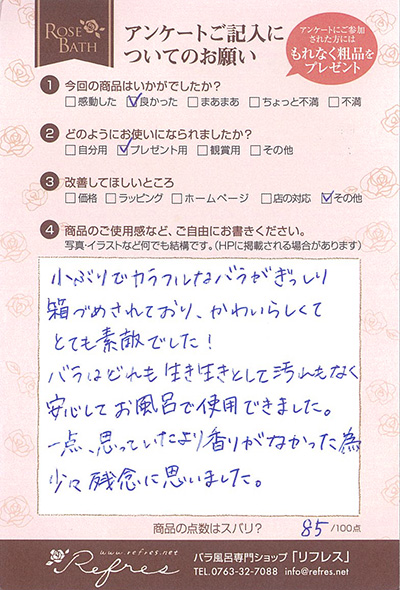 ROSE
BATH
アンケートご記入に
ついてのお願い
アンケートにご参加
された方には
もれなく粗品を
プレゼント
1 今回の商品はいかがでしたか?
□感動した ☑良かった □まあまあ □ちょっと不満 □不満
2 どのようにお使いになられましたか?
□自分用 ☑プレゼント用 □観賞用 □その他
3 改善してほしいところ
□価格 □ラッピング □ホームページ □店の対応 ☑その他
4 商品のご使用感など、ご自由にお書きください。
写真・イラストなど何でも結構です。(HPに掲載される場合があります)
小ぶりでカラフルなバラがぎっしり
箱づめされており、かわいらしくて
とても素敵でした!
バラはどれも生き生きとして汚れもなく
安心してお風呂で使用できました。
一点、思っていたより香りがなかった為
少々残念に思いました。
商品の点数はズバリ? 85 /100点
www.refres.net
Refres
バラ風呂専門ショップ「リフレス」
TEL.0763-32-7088 info@refres.net